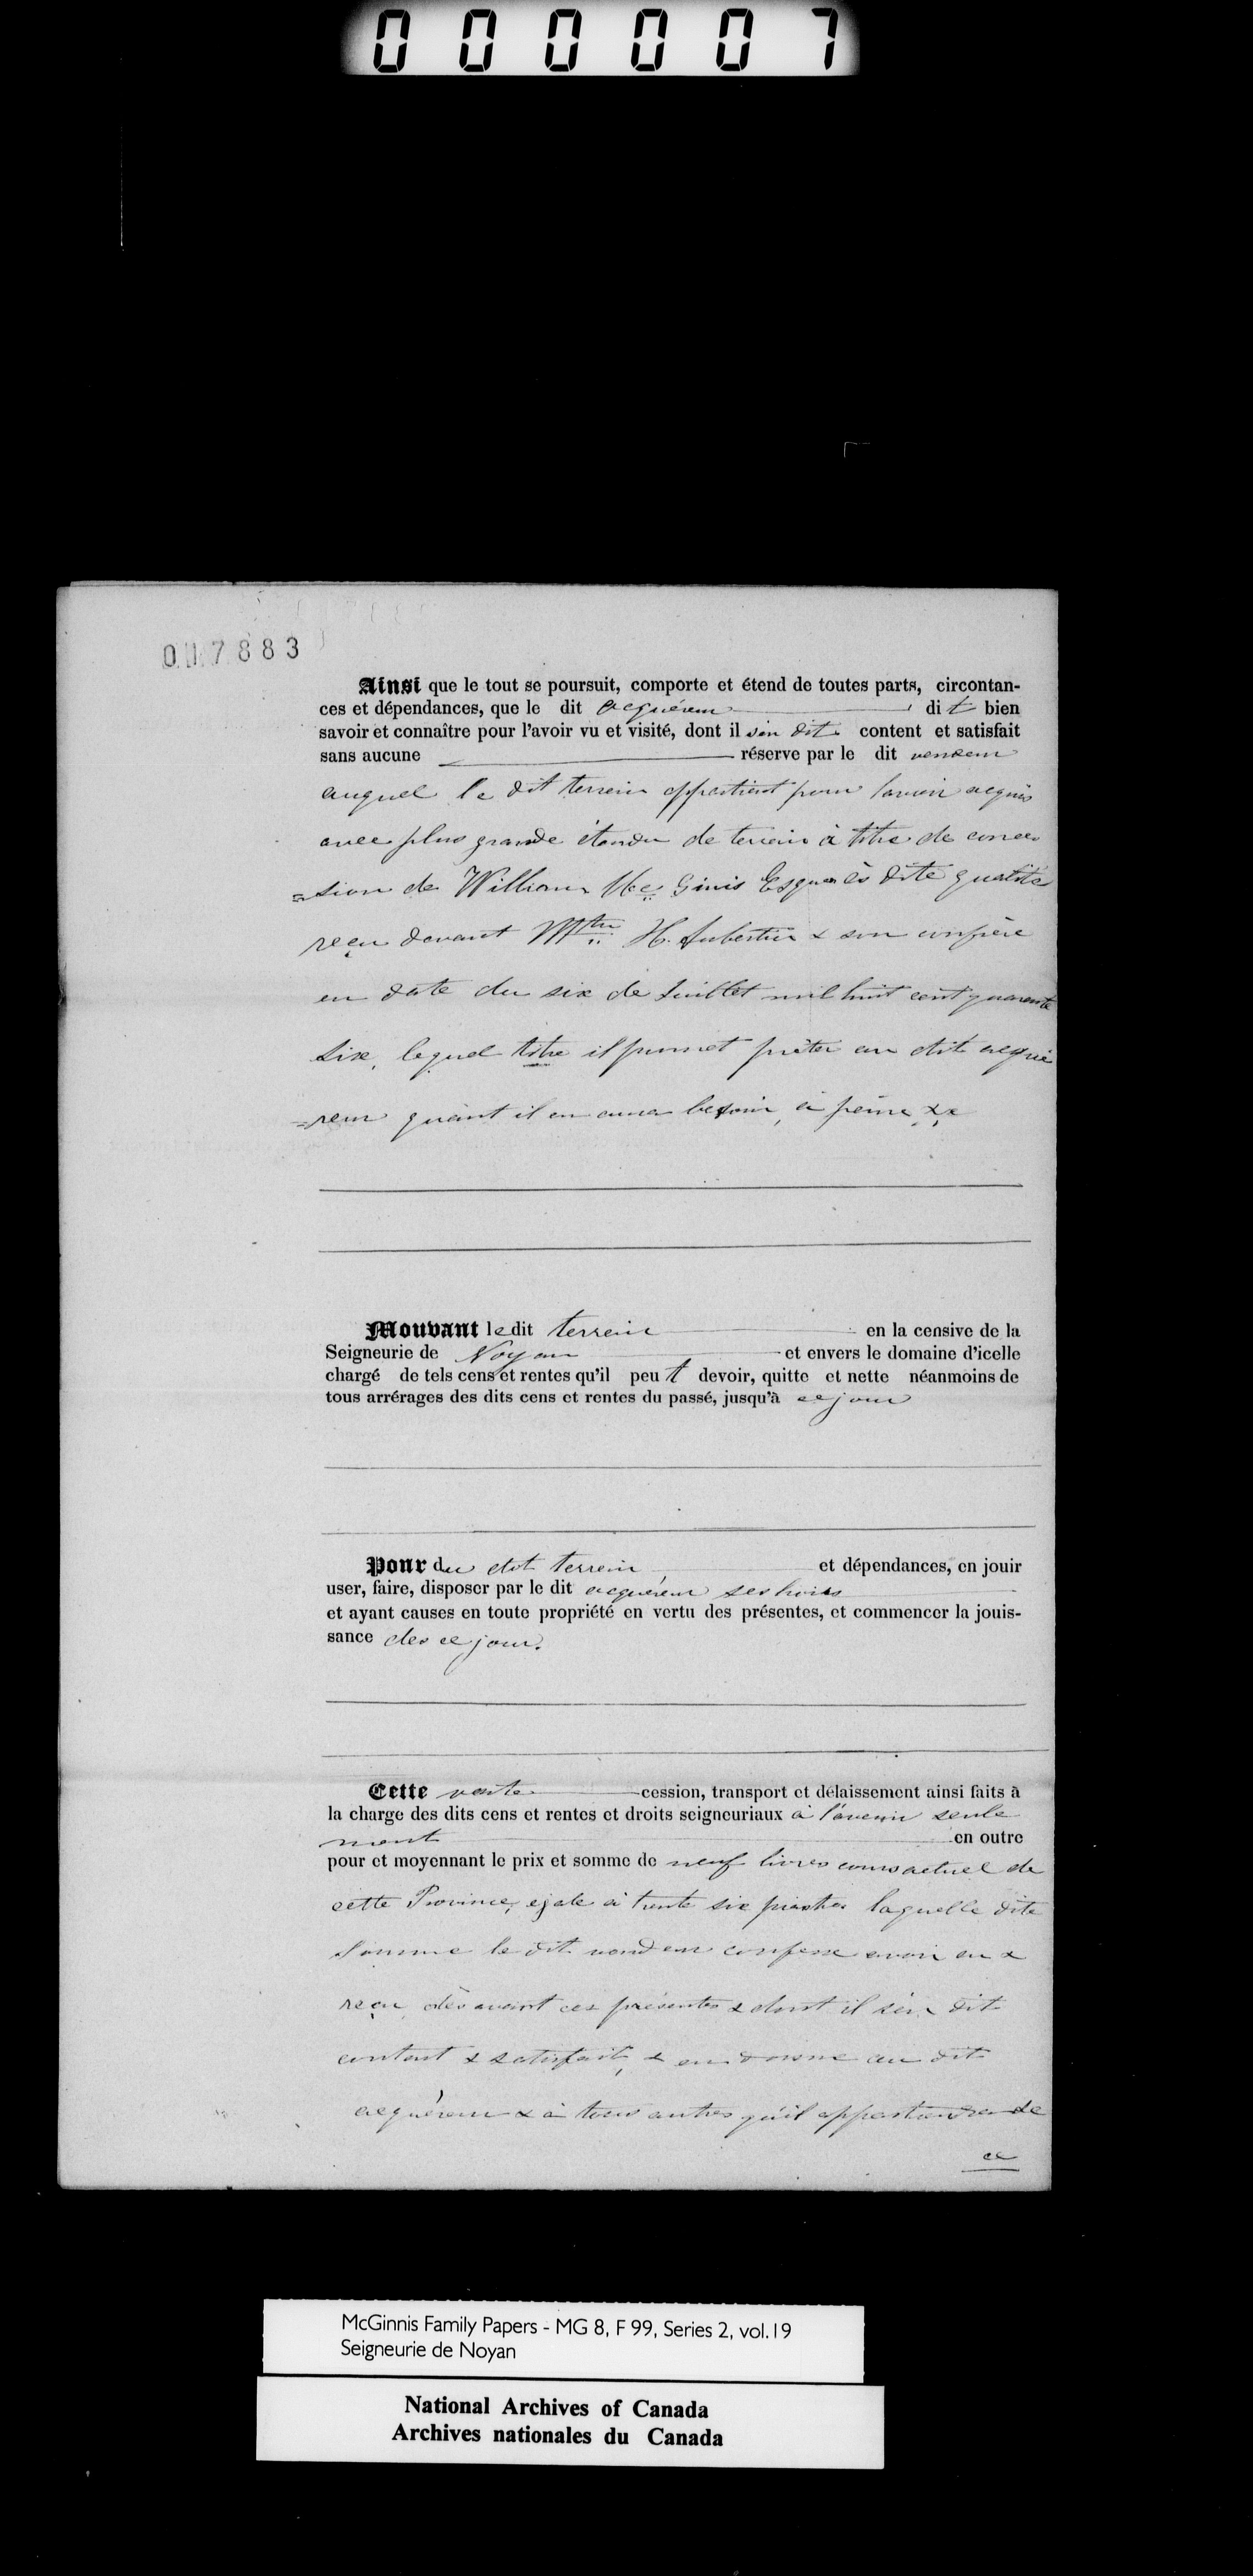 000007
017883
Ainsi que le tout se poursuit, comporte et étend de toutes parts, circontan-
ces et dépendances, que le dit acquéreur dit bien
savoir et connaître pour l'avoir vu et visité, dont il s'en dit content et satisfait
sans aucune réserve par le dit vendeur
auquel le dit terrein appartient pour l'avoir acquis
avec plus grande étendu de terrein à titre de conces
=sion de William Mc Ginis Esqr ès dite qualité
reçu devant Mtre H. Aubertin & son confrère
en date du six de Juillet mil huit cent quarante
six, lequel titre il promet prêter au dit acqué
=reur quant il en aura besoin, à peine &c
Mouvant le dit terrein en la censive de la
Seigneurie de Noyan et envers le domaine d'icelle
chargé de tels cens et rentes qu'il peut devoir, quitte et nette néanmoins de
tous arrérages des dits cens et rentes du passé, jusqu'à ce jour
Pour du dit terrein et dépendances, en jouir
user, faire, disposer par le dit acquéreur ses hoirs
et ayant causes en toute propriété en vertu des présentes, et commencer la jouis-
sance des ce jour.
Cette vente cession, transport et délaissement ainsi faits à
la charge des dits cens et rentes et droits seigneuriaux à l'avenir seule
ment en outre
pour et moyennant le prix et somme de neuf livres cours actuel de
cette Province, egale à trente six piastres laquelle dite
Somme le dit vendeur confesse avoir eu &
reçu dès avant ces présentes & dont il s'en dit
content & satisfait, & en donne au dit
acquéreur & à tous autres qu'il appartiendra de
ce
McGinnis Family Papers - MG 8, F 99, Series 2, vol.19
Seigneurie de Noyan
National Archives of Canada
Archives nationales du Canada